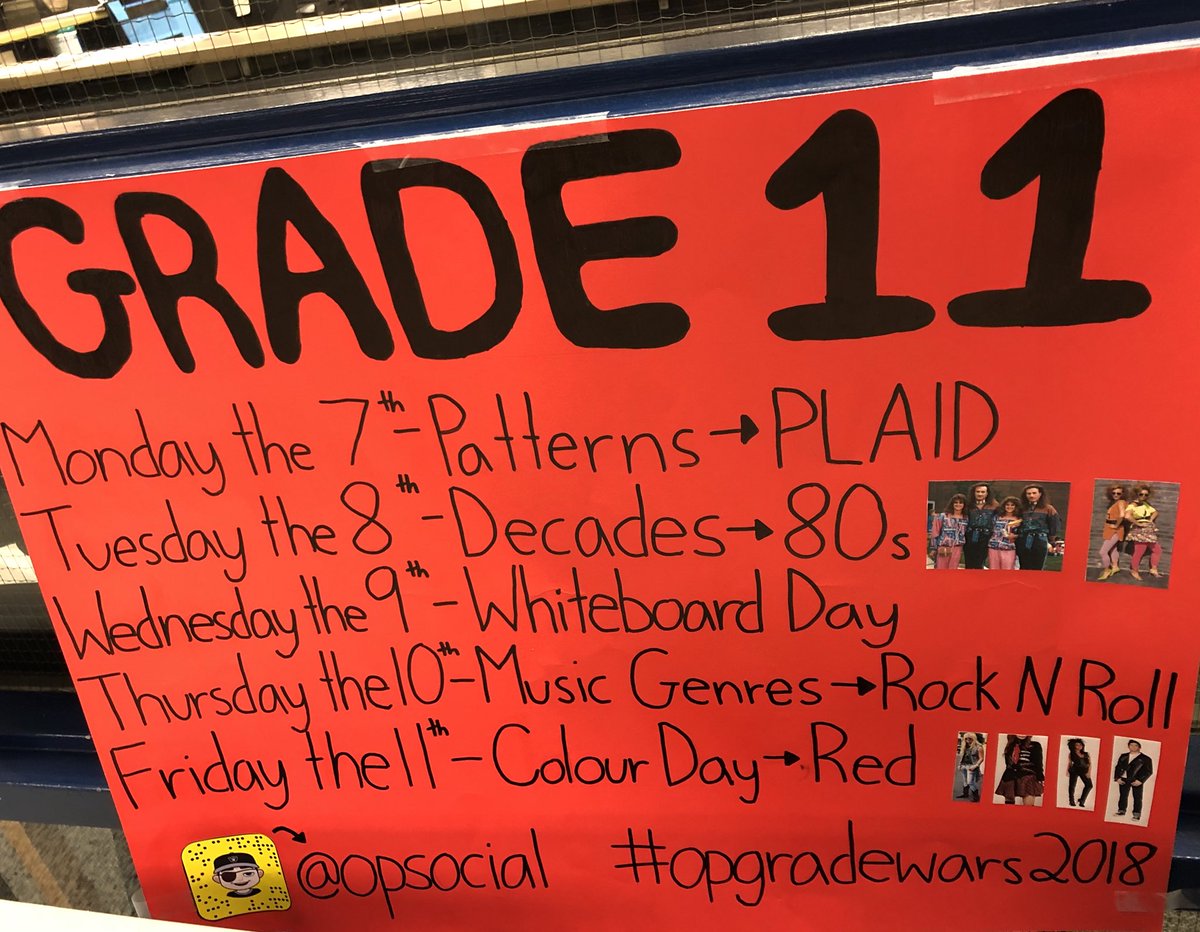 GRADE 11
Monday the 7th - Patterns → PLAID
Tuesday the 8th - Decades → 80s
Wednesday the 9th - Whiteboard Day
Thursday the 10th - Music Genres → Rock N Roll
Friday the 11th - Colour Day → Red
@opsocial #opgradewars2018